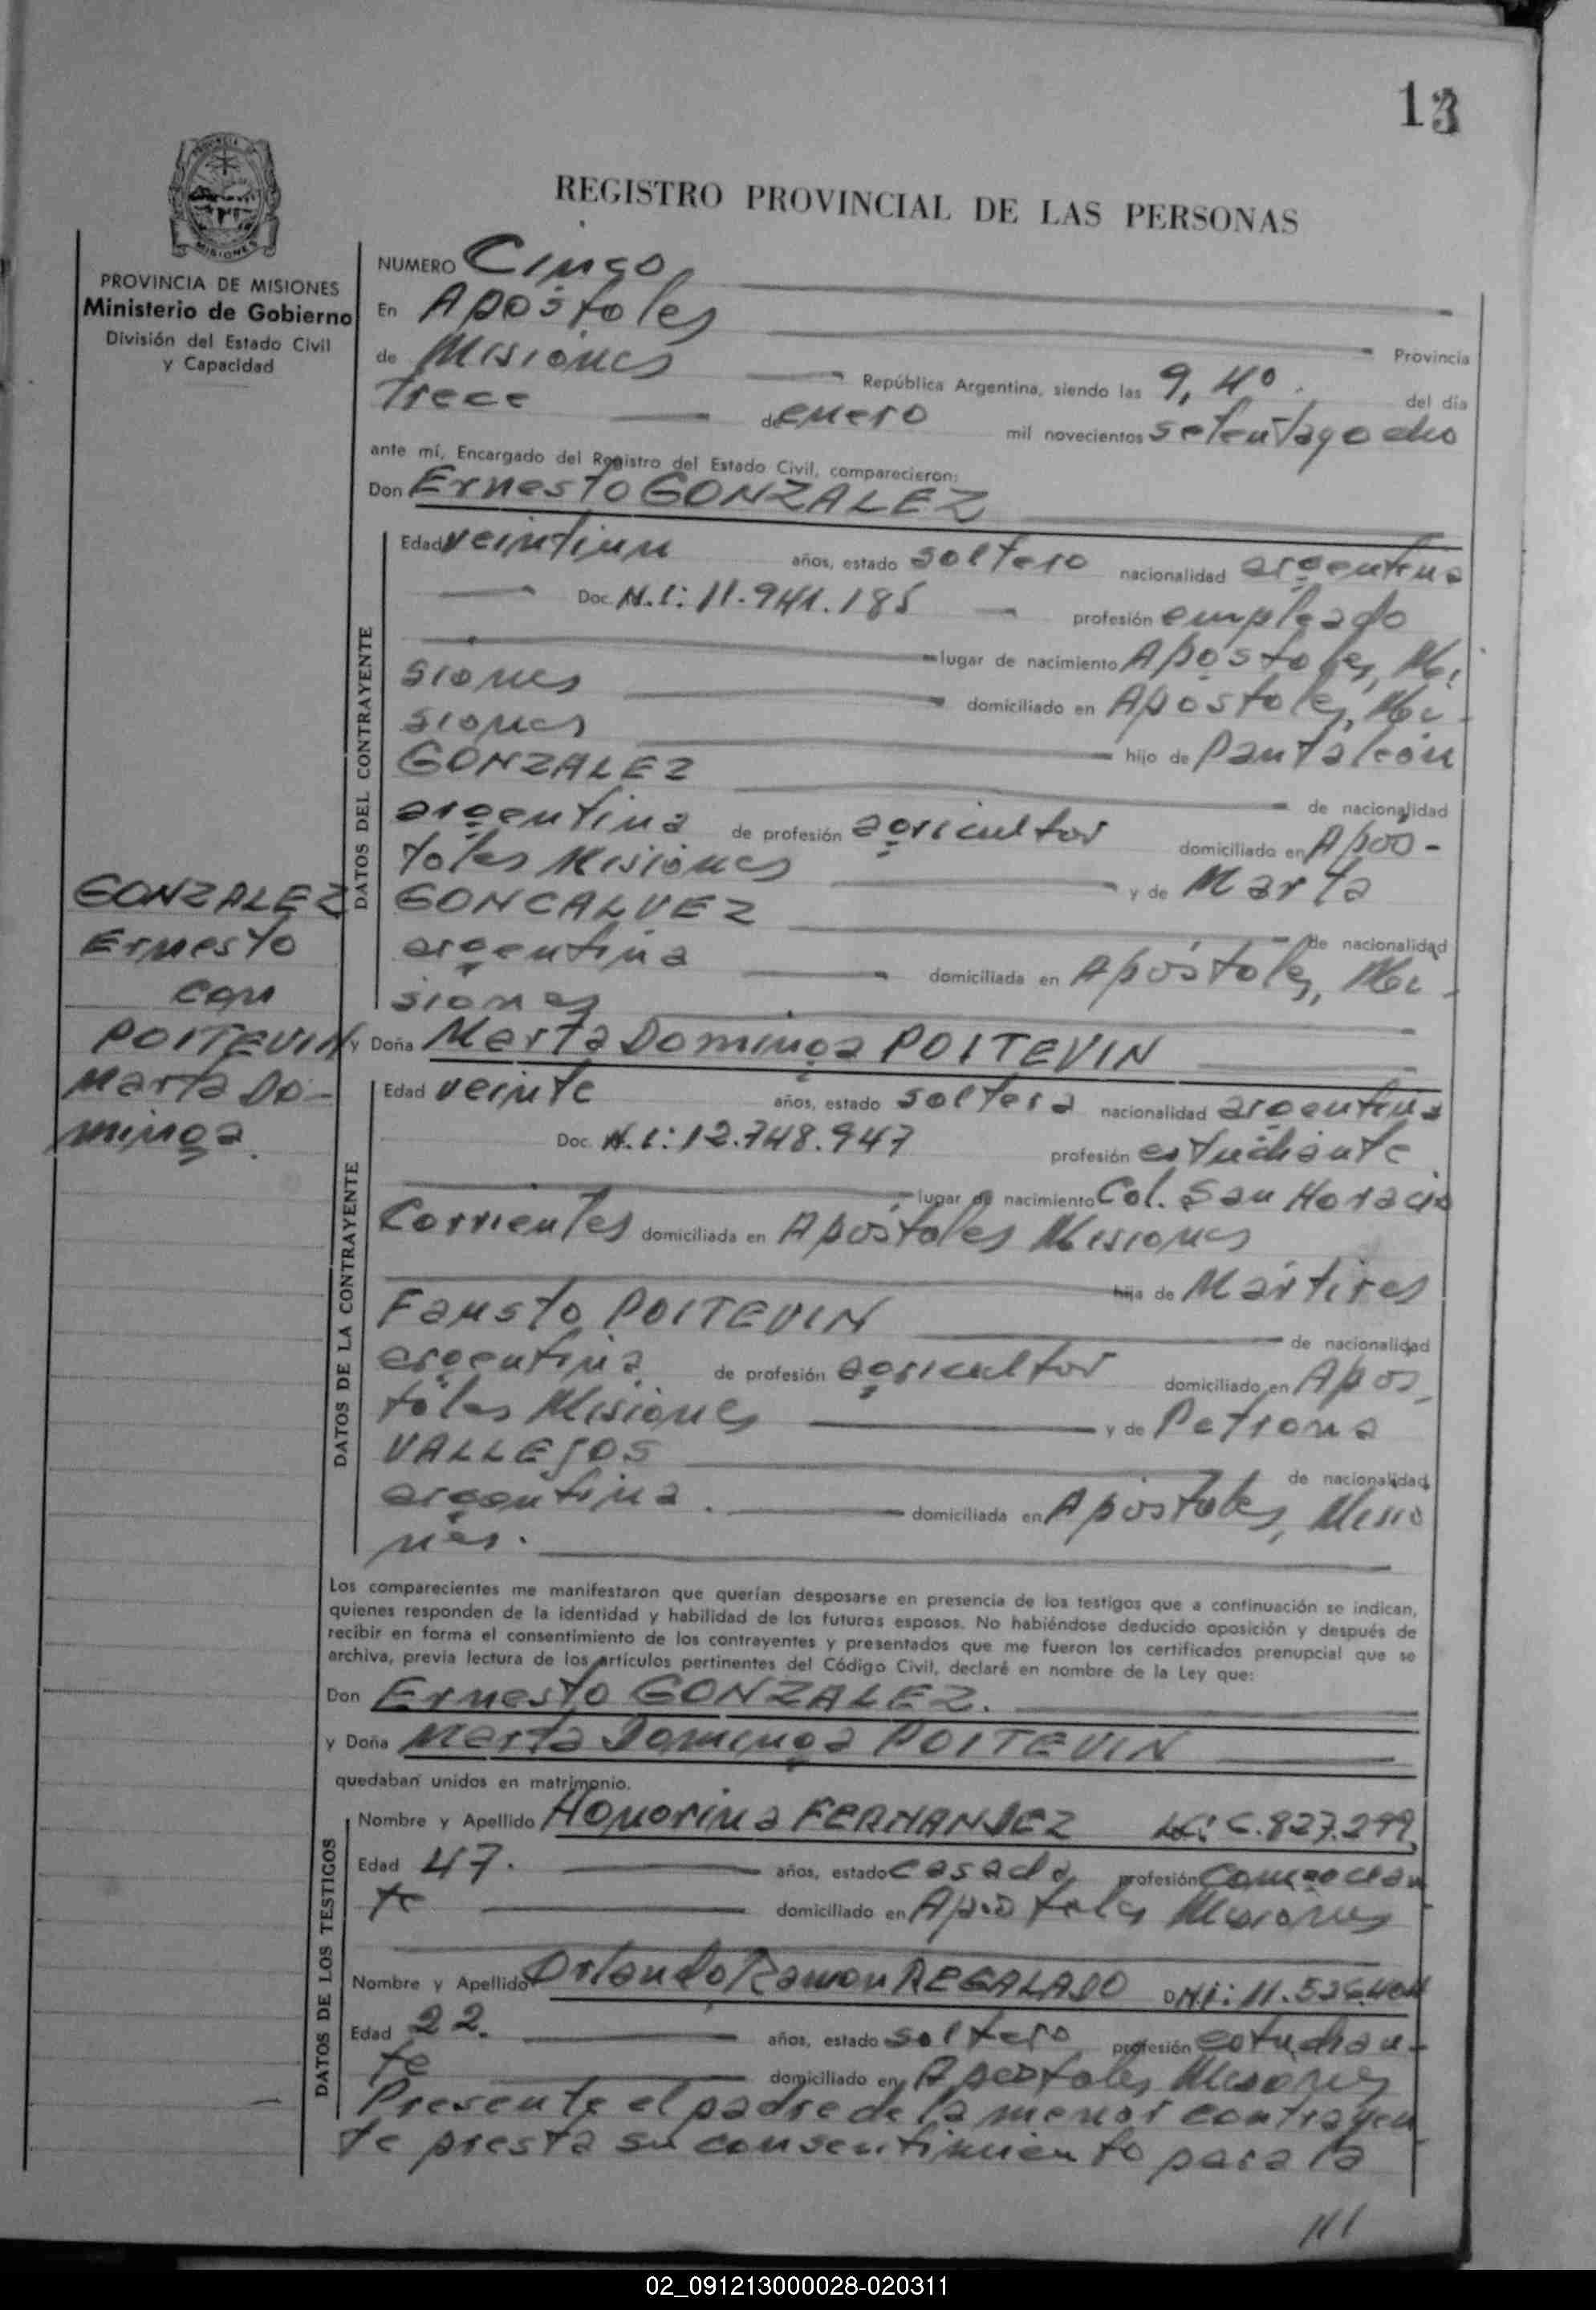 13
REGISTRO PROVINCIAL DE LAS PERSONAS
PROVINCIA DE MISIONES
Ministerio de Gobierno
División del Estado Civil
y Capacidad
NUMERO Cinco
En Apóstoles
Provincia
de Misiones República Argentina, siendo las 9,40 del día
Trece de enero mil novecientos setentayocho
ante mí, Encargado del Registro del Estado Civil, comparecieron:
Don Ernesto GONZALEZ
DATOS DEL CONTRAYENTE
Edad veintiun años, estado soltero nacionalidad argentina
Doc. N.I: 11.941.185 profesión empleado
lugar de nacimiento Apóstoles, Mi
siones domiciliado en Apóstoles, Mi-
siones hijo de Pantaleón
GONZALEZ de nacionalidad
argentina de profesión agricultor domiciliado en Após-
toles Misiones y de Marta
GONCALVEZ de nacionalidad
argentina domiciliada en Apóstoles, Mi-
siones
GONZALEZ
Ernesto
con
POITEVIN
Marta Do-
minga.
y Doña Marta Dominga POITEVIN
DATOS DE LA CONTRAYENTE
Edad veinte años, estado soltera nacionalidad argentina
Doc. N.I: 12.748.947 profesión estudiante
lugar de nacimiento Col. San Horacio
Corrientes domiciliada en Apóstoles Misiones
hija de Mártires
Fausto POITEVIN de nacionalidad
argentina de profesión agricultor domiciliado en Apos,
toles Misiones y de Petrona
VALLEJOS de nacionalidad
argentina. domiciliada en Apóstoles, Misio
nes.
Los comparecientes me manifestaron que querían desposarse en presencia de los testigos que a continuación se indican,
quienes responden de la identidad y habilidad de los futuros esposos. No habiéndose deducido oposición y después de
recibir en forma el consentimiento de los contrayentes y presentados que me fueron los certificados prenupcial que se
archiva, previa lectura de los artículos pertinentes del Código Civil, declaré en nombre de la Ley que:
Don Ernesto GONZALEZ.
y Doña Marta Dominga POITEVIN
quedaban unidos en matrimonio.
DATOS DE LOS TESTIGOS
Nombre y Apellido Honorina FERNANDEZ
Edad 47. años, estado casada profesión comercian
te domiciliado en Apóstoles Misiones
Nombre y Apellido Orlando Ramon REGALADO DNI: 11.526.404
Edad 22. años, estado soltero profesión estudian-
te domiciliado en Apostoles Misiones
Presente el padre de la menor contrayen
te presta su consentimiento para la
///
02_091213000028-020311